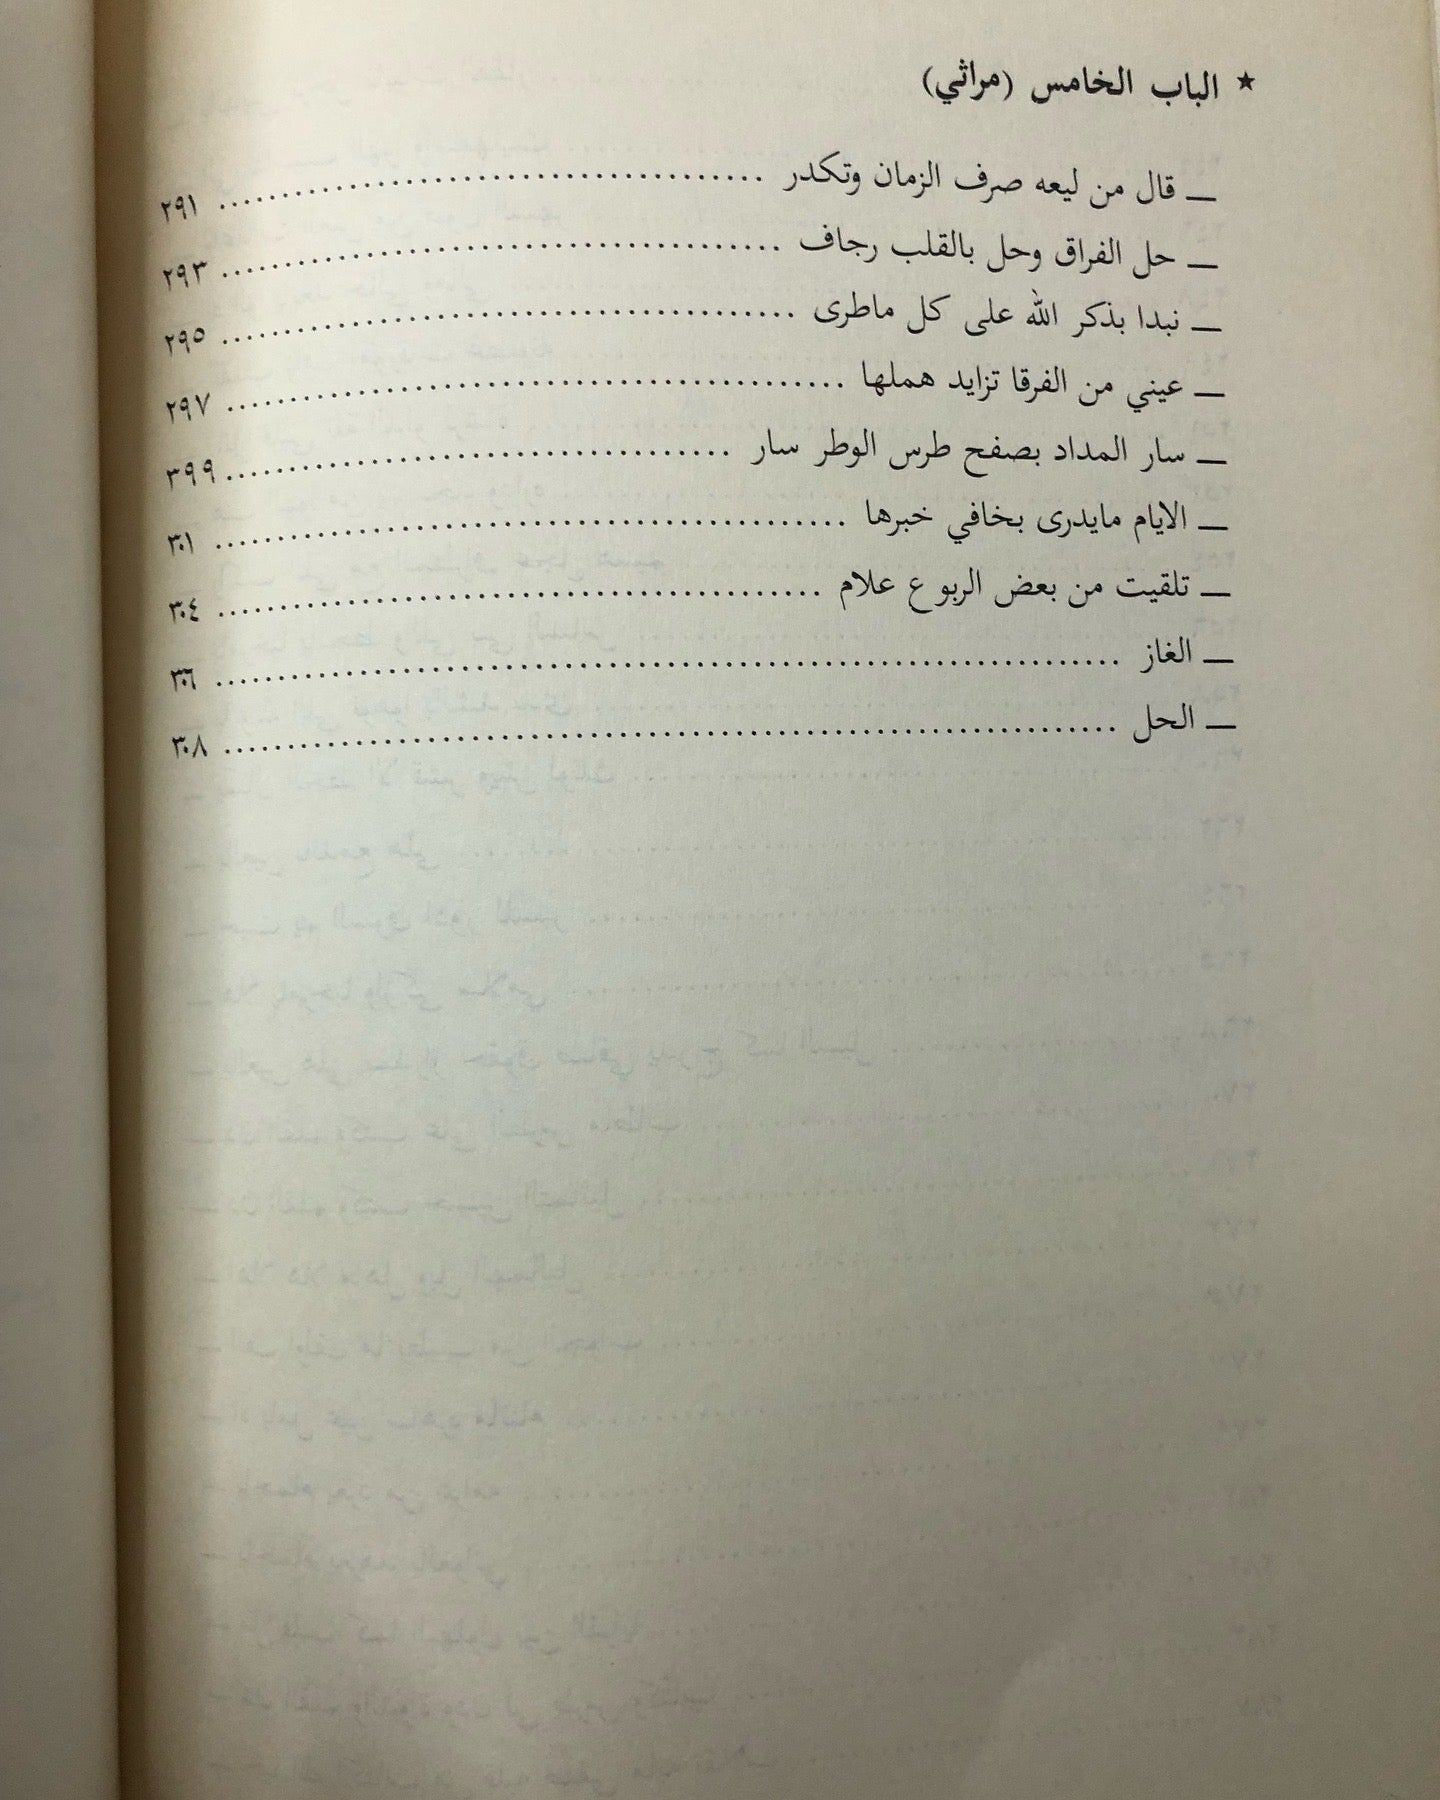 ★ الباب الخامس (مراثي)
— قال من ليعه صرف الزمان وتكدر ........ ٢٩١
— حل الفراق وحل بالقلب رجاف ........ ٢٩٣
— نبدا بذكر الله على كل ماطرى ........ ٢٩٥
— عيني من الفرقا تزايد هملها ........ ٢٩٧
— سار المداد بصفح طرس الوطر سار ........ ٣٩٩
— الايام مايدرى بخافي خبرها ........ ٣٠١
— تلقيت من بعض الربوع علام ........ ٣٠٤
— الغاز ........ ٣٠٦
— الحل ........ ٣٠٨